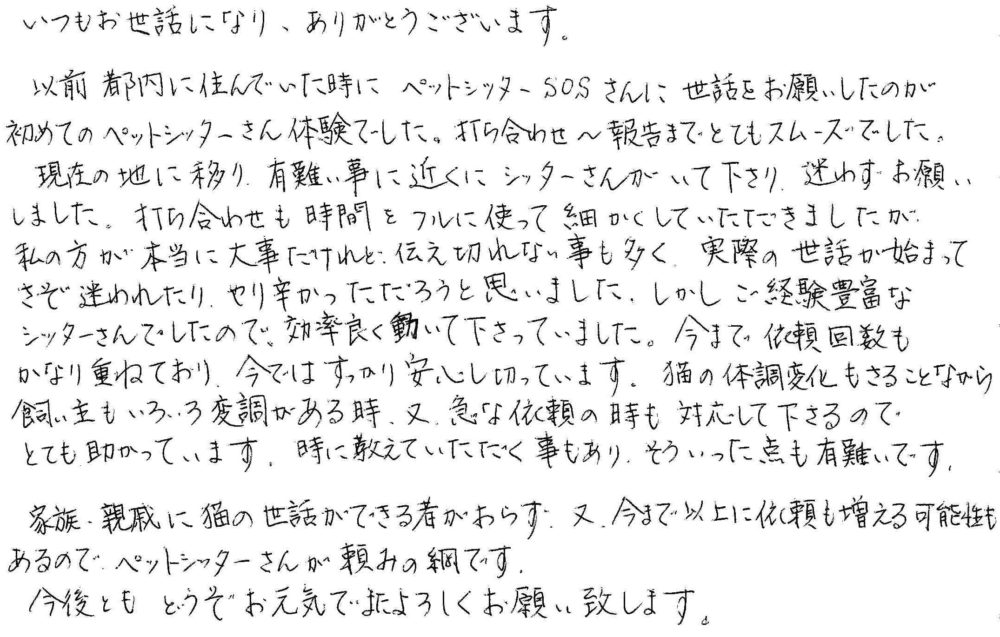 いつもお世話になり、ありがとうございます。
以前 都内に住んでいた時に ペットシッターSOSさんに 世話をお願いしたのが
初めてのペットシッターさん体験でした。打ち合わせ～報告までとてもスムーズでした。
現在の地に移り、有難い事に近くに シッターさんがいて下さり、迷わずお願い
しました。打ち合わせも時間をフルに使って細かくしていただきましたが
私の方が本当に大事だけれど、伝え切れない事も多く、実際の世話が始まって
さぞ迷われたり、やり辛かっただろうと思いました。しかしご経験豊富な
シッターさんでしたので、効率良く動いて下さっていました。今まで依頼回数も
かなり重ねており、今ではすっかり安心し切っています。猫の体調変化もさることながら
飼い主もいろいろ変調がある時、又、急な依頼の時も対応して下さるので
とても助かっています。時に教えていただく事もあり、そういった点も有難いです。
家族・親戚に猫の世話ができる者がおらず、又、今まで以上に依頼も増える可能性も
あるので、ペットシッターさんが頼みの綱です。
今後とも どうぞお元気でまたよろしくお願い致します。